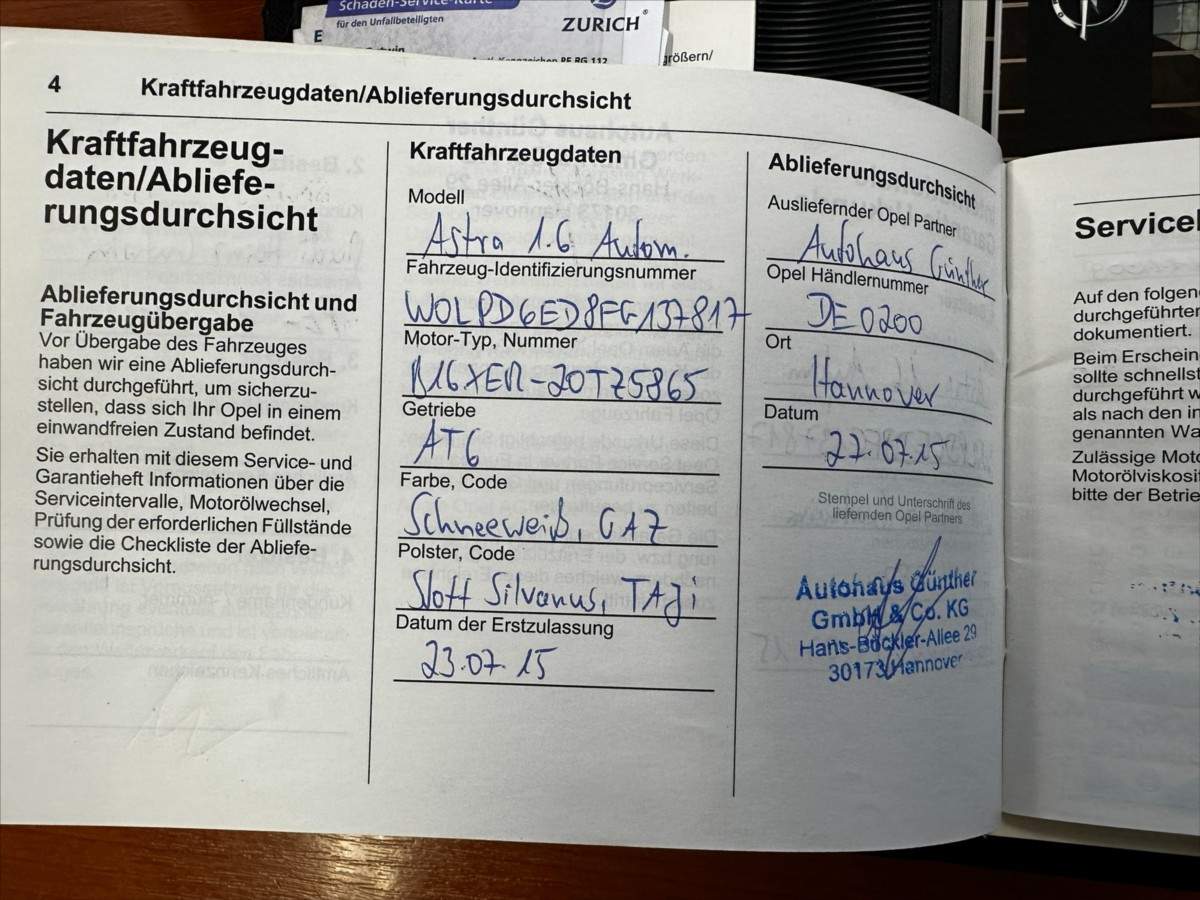 Schaden-Service-Karte
für den Unfallbeteiligten
ZURICH
E
größern/
PE RG 112
4 Kraftfahrzeugdaten/Ablieferungsdurchsicht
Kraftfahrzeug-
daten/Abliefe-
rungsdurchsicht
Ablieferungsdurchsicht und
Fahrzeugübergabe
Vor Übergabe des Fahrzeuges
haben wir eine Ablieferungsdurch-
sicht durchgeführt, um sicherzu-
stellen, dass sich Ihr Opel in einem
einwandfreien Zustand befindet.
Sie erhalten mit diesem Service- und
Garantieheft Informationen über die
Serviceintervalle, Motorölwechsel,
Prüfung der erforderlichen Füllstände
sowie die Checkliste der Abliefe-
rungsdurchsicht.
Kraftfahrzeugdaten
Modell
Astra 1.6 Autom.
Fahrzeug-Identifizierungsnummer
W0LPD6ED8FG137817
Motor-Typ, Nummer
B16XER-20TZ5865
Getriebe
AT6
Farbe, Code
Schneeweiß, GAZ
Polster, Code
Stoff Silvanus, TAJi
Datum der Erstzulassung
23.07.15
Ablieferungsdurchsicht
Ausliefernder Opel Partner
Autohaus Günther
Opel Händlernummer
DE0200
Ort
Hannover
Datum
22.07.15
Stempel und Unterschrift des
liefernden Opel Partners
Autohaus Günther
GmbH & Co. KG
Hans-Böckler-Allee 29
30173 Hannover
Auf den folgen
durchgeführten
dokumentiert.
Beim Erschein
sollte schnellst
durchgeführt w
als nach den in
genannten Wa
Zulässige Moto
Motorölviskosit
bitte der Betrie